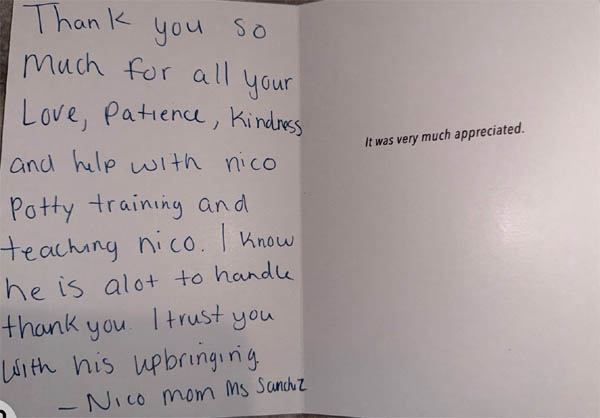 Thank you so
much for all your
Love, Patience, Kindness
and help with nico
Potty training and
teaching nico. I know
he is alot to handle
thank you. I trust you
with his upbringing
- Nico mom Ms Sanchez
It was very much appreciated.